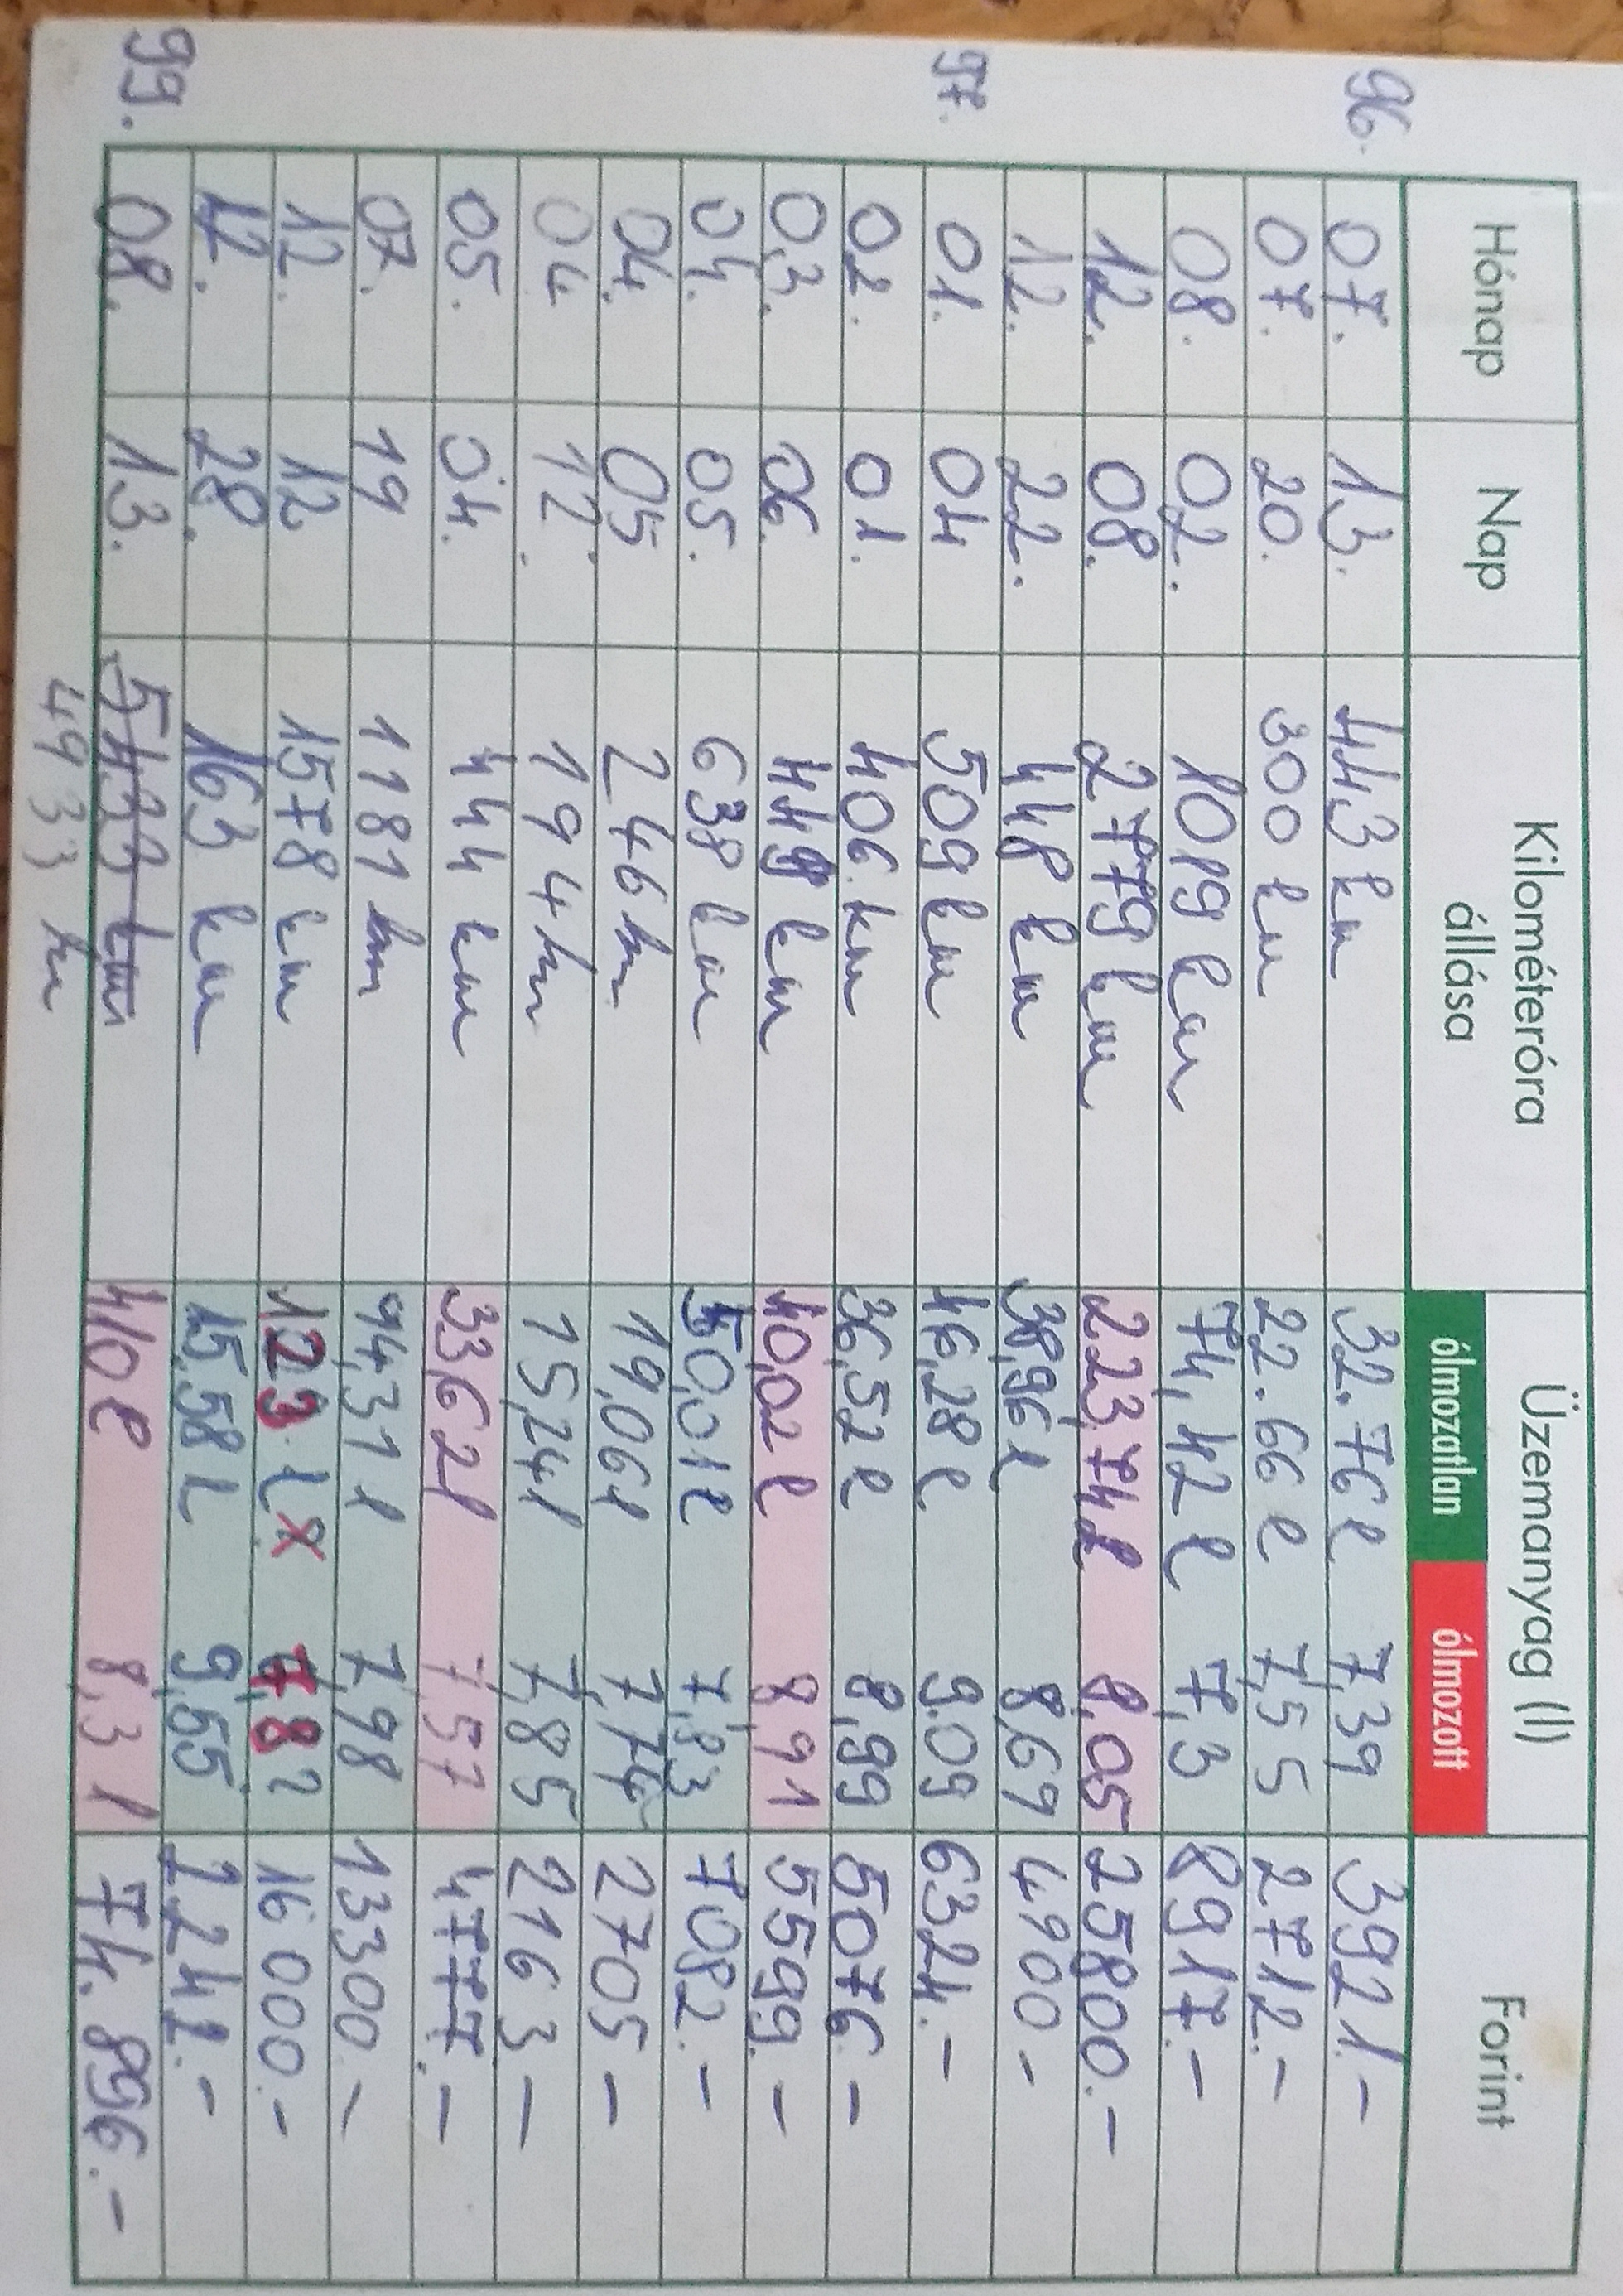 Hónap Nap Kilométeróra állása Üzemanyag (l) Forint
ólmozatlan ólmozott
96. 07. 13. 443 km 32.76 l 7,39 3921.-
07. 20. 300 km 22.66 l 7,55 2712.-
08. 02. 1019 km 74,42 l 7,3 8917.-
12. 08. 2779 km 223,74 l 8,05 25800.-
12. 22. 448 km 38,96 l 8,69 4900-
97. 01. 04 509 km 46,28 l 9.09 6324.-
02. 01. 406 km 36,52 l 8,99 5076-
03. 06. 449 km 40,02 l 8,91 5599.-
04. 05. 638 km 50,01 l 7,83 7082.-
04. 05 246 km 19,06 l 7,74 2705-
04. 12. 194 km 15,24 l 7,85 2163-
05. 04. 444 km 33,62 l 7,57 4777.-
07. 19 1181 km 94,31 l 7,98 13300.-
12. 12 1578 km 123 l x 7,8? 16000.-
12. 28. 163 km 15,58 l 9,55 2242.-
99. 08. 13. 5433 km 410 l 8,31 l 74.896.-
4933 km